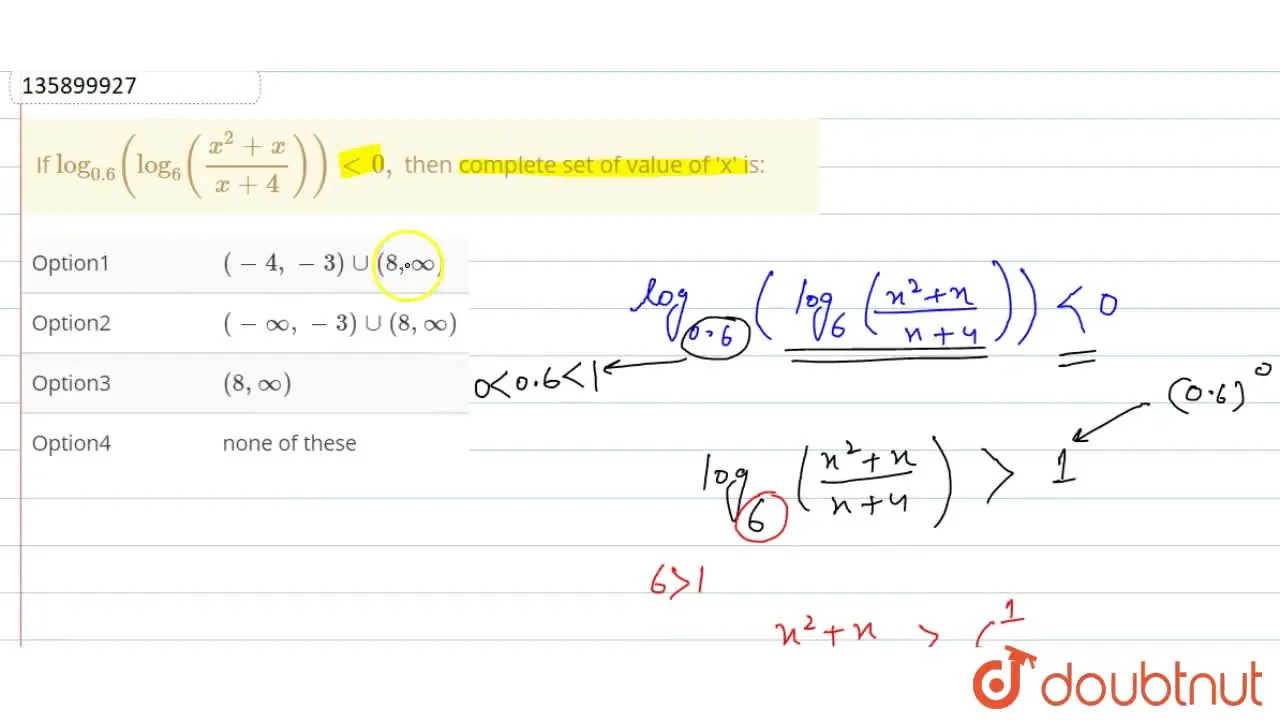 135899927
If log_{0.6}(log_6((x^2 + x)/(x + 4))) < 0, then complete set of value of 'x' is:
Option1 (− 4, − 3) ∪ (8, ∞)
Option2 (− ∞, − 3) ∪ (8, ∞)
Option3 (8, ∞)
Option4 none of these
log_{0.6}(log_6((x^2+x)/(x+4))) < 0
0<0.6<1
(0.6)^0
log_6((x^2+x)/(x+4)) > 1
6>1
x^2+x > 6^1
doubtnut